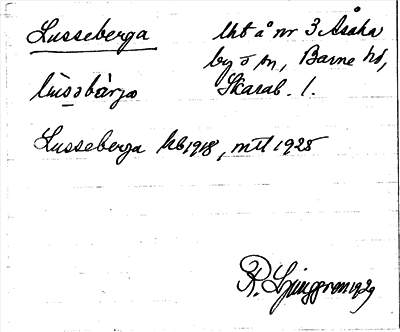 Lusseberga
lht å nr 3 Åsaka
by o sn, Barne hd,
Skarab. l.
Lusseberga hb 1918, mtl 1925
R. Ljunggren 1929